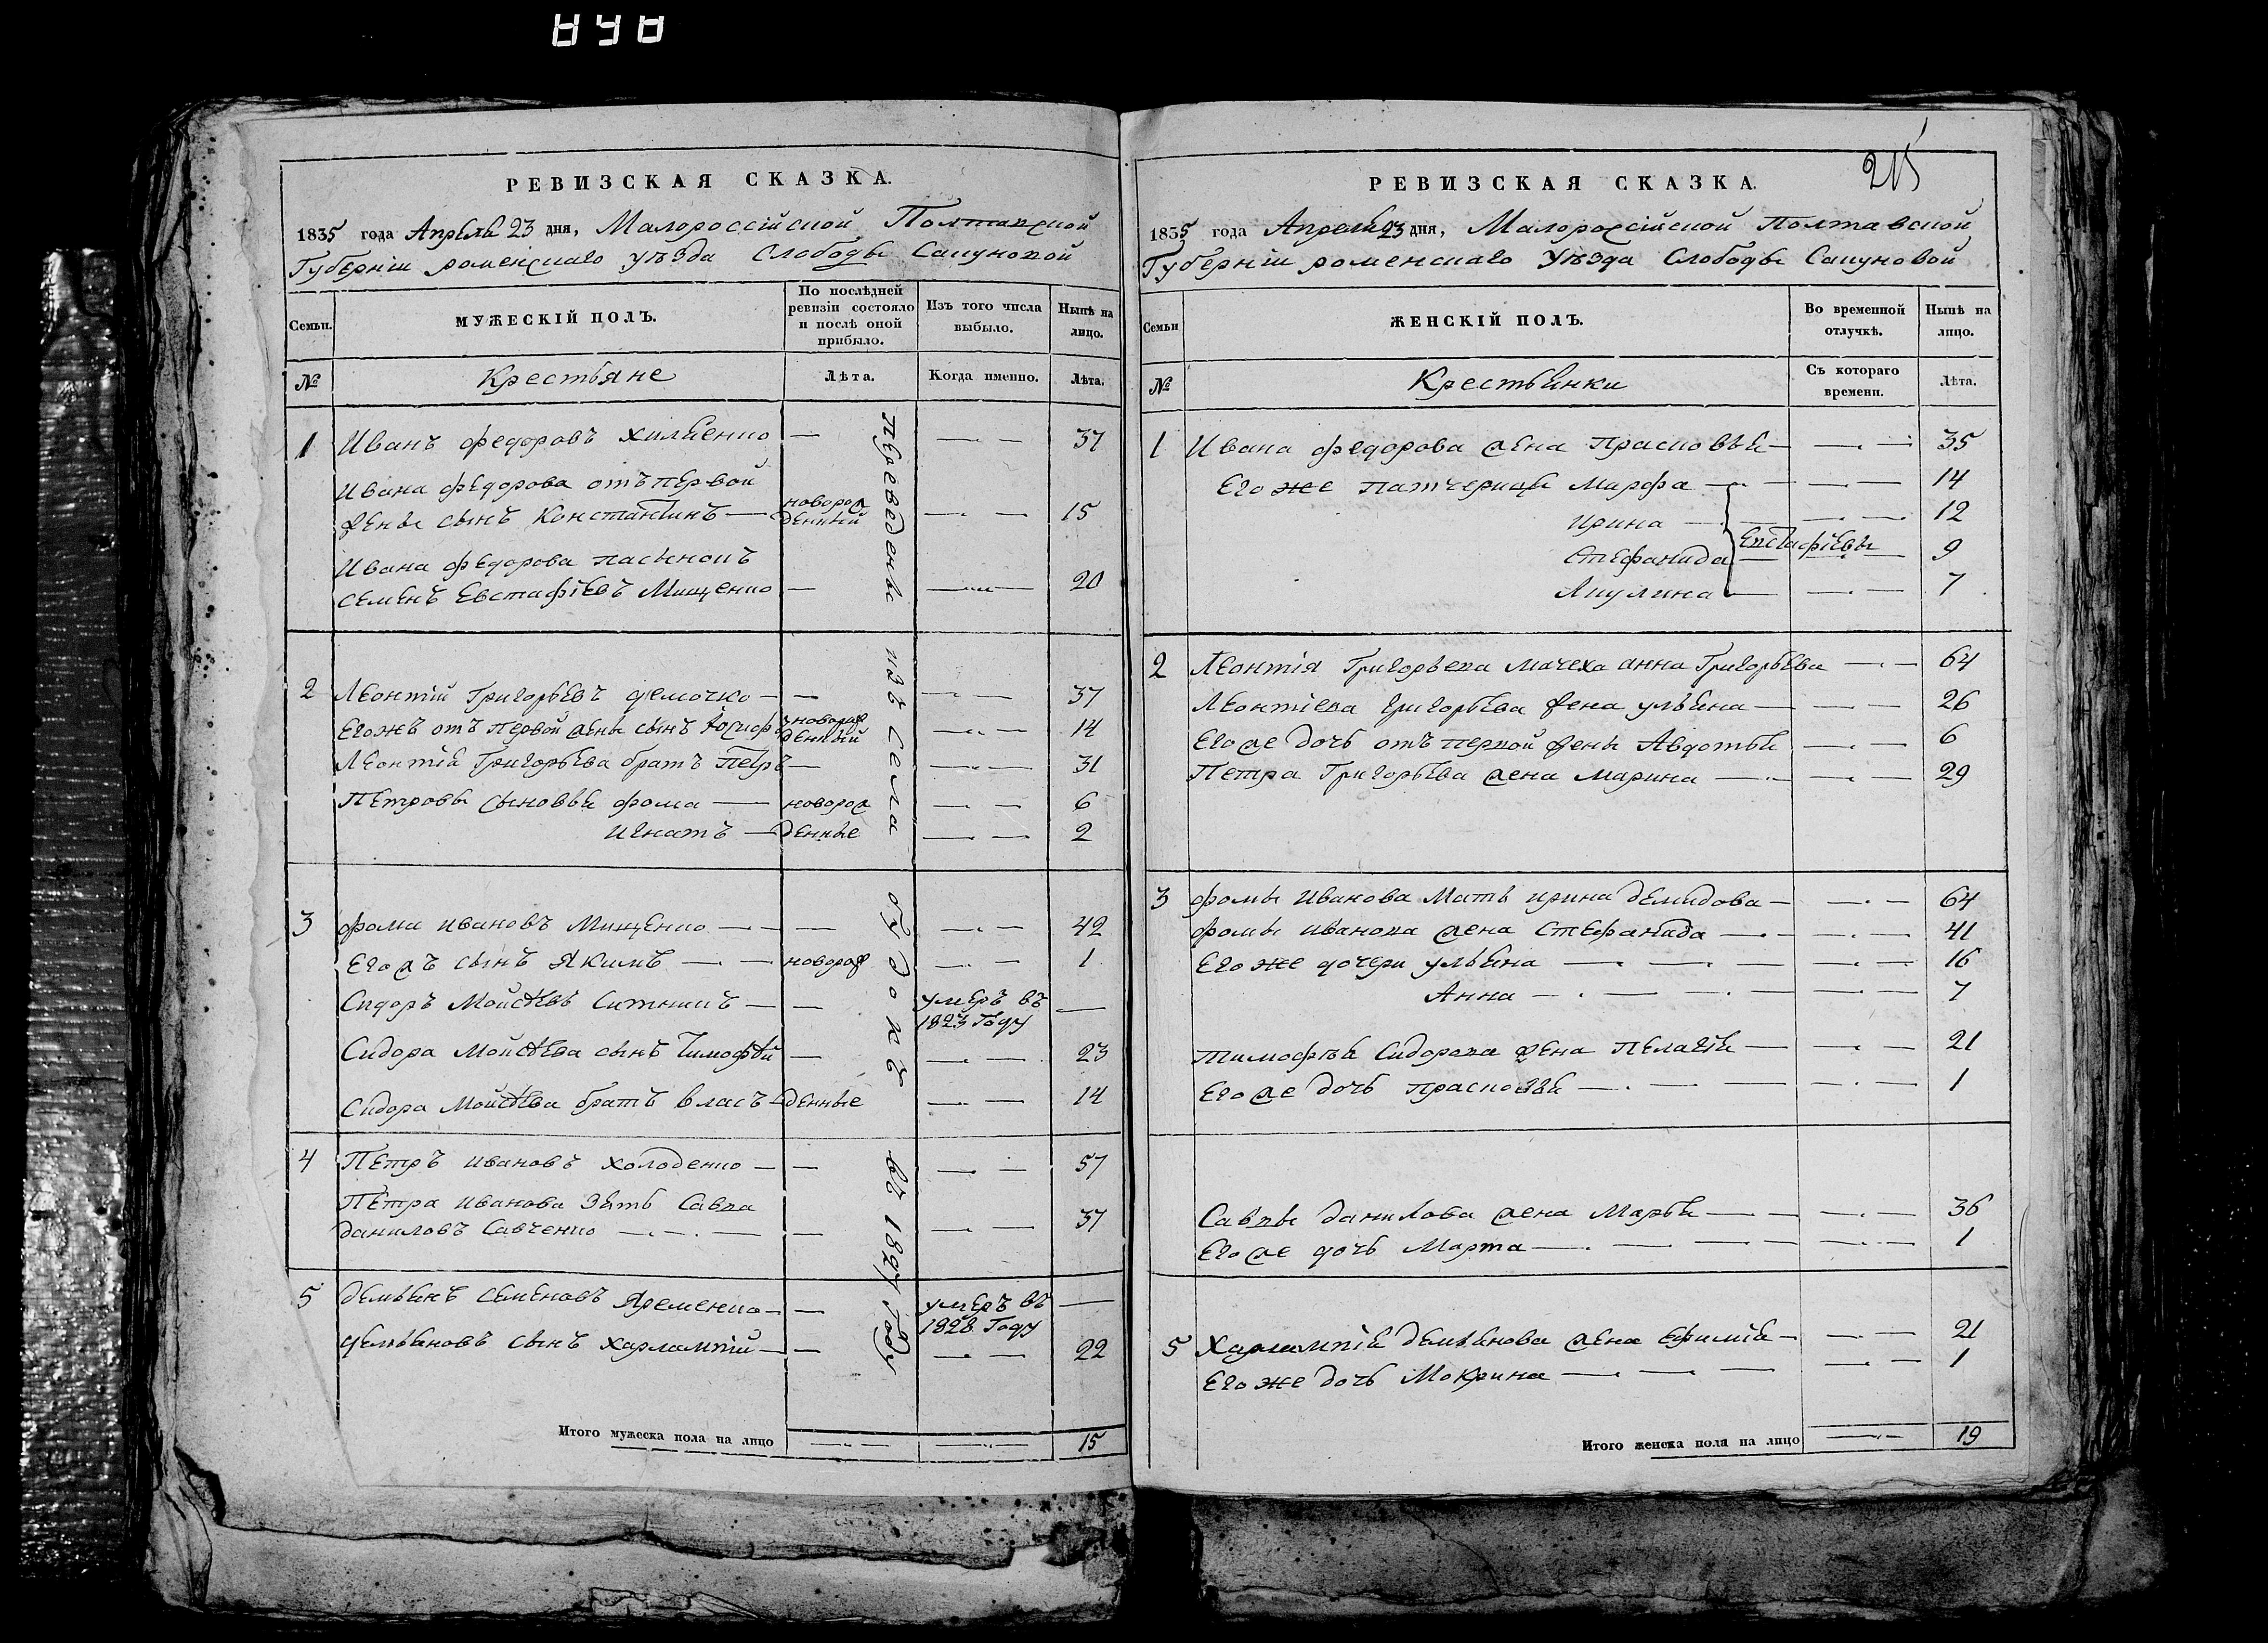 858
РЕВИЗСКАЯ СКАЗКА.
1835 года Апреля 23 дня, Малороссійской Полтавской
Губерніи роменскаго уѣзда Слободы Сапуновой
Семьи.
МУЖЕСКІЙ ПОЛЪ.
По послѣдней
ревизіи состояло
и послѣ оной
прибыло.
Изъ того числа
выбыло.
Нынѣ на
лицо.
№
Крестьяне
Лѣта.
Когда именно.
Лѣта.
переведены изъ села оздовъ въ 1827 году
1 Иванъ федоровъ Хилченко — — — 37
Ивана федорова отъ первой
жены сынъ Константинъ — новорож
денный — — 15
Ивана федорова пасынокъ
семенъ Евстафіевъ Мищенко — — — 20
2 Леонтій Григорьевъ демочко — — — 37
Егожъ отъ первой жены сынъ Іосифъ новорож
денный — — 14
Леонтія Григорьева братъ Петръ — — — 31
Петровы сыновья фома — новорож — — 6
Игнатъ — денные — — 2
3 фома ивановъ Мищенко — — — — 42
Егожъ сынъ Якимъ — — новорож — — 1
Сидоръ Мойсѣевъ Ситникъ — — умеръ въ
1823 Году —
Сидора Мойсѣева сынъ Тимофѣй — — — 23
Сидора Мойсѣева братъ власъ — денные — — 14
4 Петръ ивановъ холоденко — — — — 57
Петра иванова зять Савва
даниловъ Савченко — — — — — 37
5 демьянъ семеновъ Яременко — — умеръ въ
1828 Году —
демьяновъ сынъ харлампій — — — — 22
Итого мужеска пола на лицо — — 15
215
РЕВИЗСКАЯ СКАЗКА.
1835 года Апреля 23 дня, Малороссійской Полтавской
Губерніи роменскаго Уѣзда Слободы Сапуновой
Семьи
ЖЕНСКІЙ ПОЛЪ.
Во временной
отлучкѣ.
Нынѣ на
лицо.
№
Крестьянки
Съ котораго
времени.
Лѣта.
1 Ивана федорова жена Прасковья — — — 35
Его же патчерицы Марфа — — — 14
ирина — — — 12
Евстафіевы
стефанида — — — 9
Акулина — — — 7
2 Леонтія Григорьева мачеха анна Григорьева — — 64
Леонтіева Григорьева жена ульяна — — — 26
Его же дочь отъ первой жены Авдотья — — 6
Петра Григорьева жена марина — — — 29
3 фомы иванова Мать ирина демидова — — — 64
фомы иванова жена стефанида — — — — 41
Его же дочери ульяна — — — — — 16
Анна — — — — — — 7
тимофѣя Сидорова жена пелагія — — — 21
Его же дочь прасковья — — — — — 1
Саввы данилова жена Марья — — — — 36
Его же дочь Марта — — — — — — 1
5 Харлампія демьянова жена ефимія — — — 21
Его же дочь Мокрина — — — — 1
Итого женска пола на лицо — 19